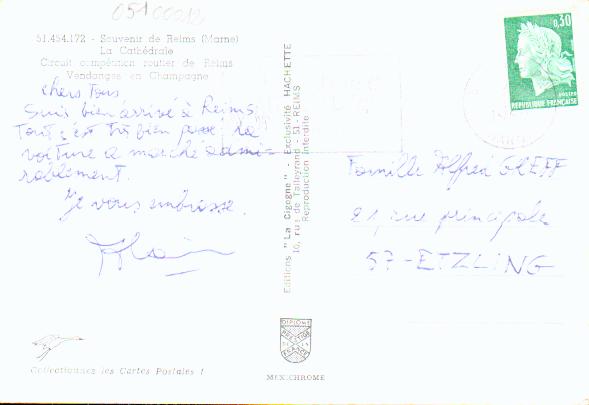 05100012
51.454.172 - Souvenir de Reims (Marne)
La Cathédrale
Circuit compétition routier de Reims
Vendanges en Champagne
Chers Tous
Suis bien arrivé à Reims.
Tout s'est très bien passé, la
voiture a marché admi-
rablement.
Je vous embrasse.
Collectionnez les Cartes Postales !
Editions "La Cigogne" - Exclusivité HACHETTE
10, rue de Talleyrand - 51 - REIMS
Reproduction interdite
DIPLOME
PRESTIGE
FRANCE
MEXICHROME
0,30
postes
REPUBLIQUE FRANÇAISE
Famille Alfred GREFF
21, rue principale
57-ETZLING